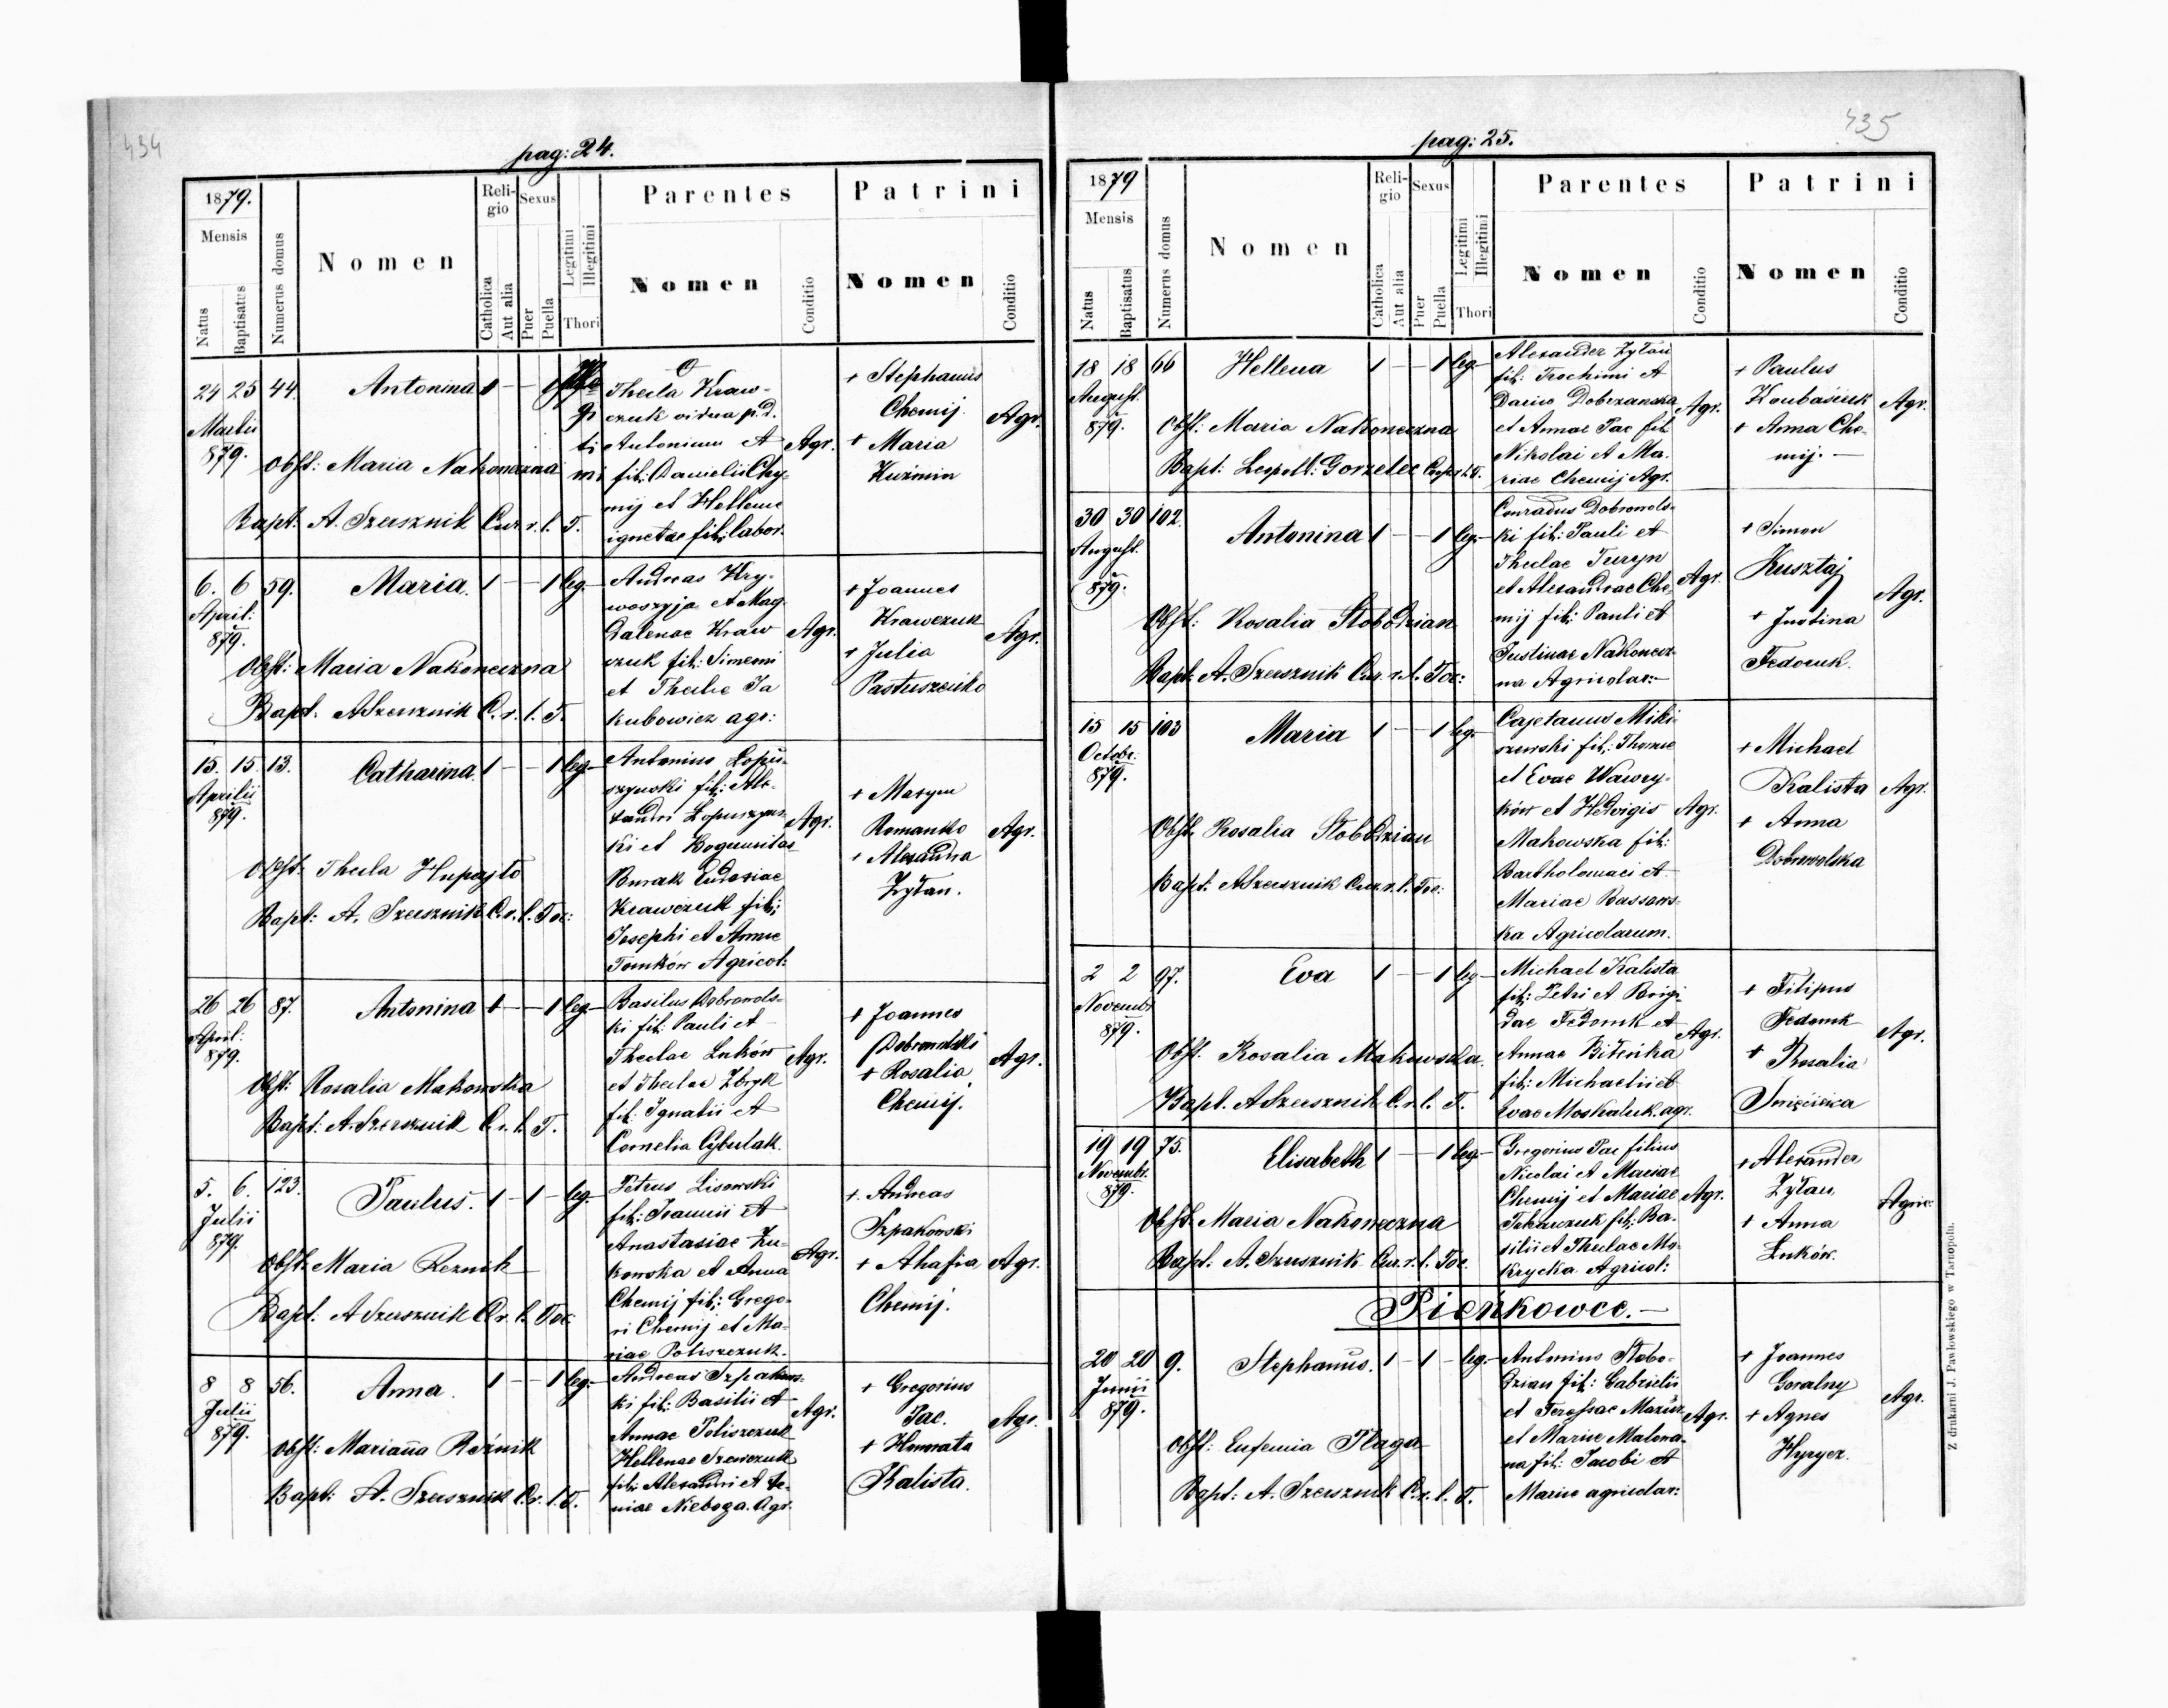 434
pag: 24.
1879.
Mensis
Natus
Baptisatus
Numerus domus
Nomen
Religio
Catholica
Aut alia
Sexus
Puer
Puella
Legitimi
Illegitimi
Thori
Parentes
Nomen
Conditio
Patrini
Nomen
Conditio
24 25 44. Antonina 1 — — 1
Martii
879.
Obst: Maria Nakoneczna
Bapt. A. Szersznik Cur. r. l. T.
Thecla Kraw-
czuk vidua p. d.
Antonium et
fil: Danielis Chy-
mij et Hellenae
ignotae fil: labor.
Agr.
+ Stephanus
Chemij.
+ Maria
Kuźmin
Agr.
6. 6 59. Maria. 1 — — 1 leg.—
April:
879.
Obst: Maria Nakoneczna
Bapt. A Szersznik C. r. l. T.
Andreas Kry-
woszyja et Mag-
dalenae Kraw
czuk fil: Simeoni
et Theclae Ja
kubowicz agr:
Agr.
+ Joannes
Krawczuk
+ Julia
Pastuszenko
Agr.
15. 15 13. Catharina. 1 — — 1 leg.—
Aprilis
879.
Obst: Thecla Hupajło
Bapt: A. Szersznik C. r. l. Toc:
Antonius Łopu-
szyński fil: Ale-
xandri Łopuszyns-
ki et Bogumilae
Burak Eudoxiae
Krawczuk fil:
Josephi et Annae
Tomków Agricol:
Agr.
+ Maxym
Romanko
+ Alexandra
Zyłan.
Agr.
26 26 87. Antonina 1 — — 1 leg.—
April:
879.
Obst: Rosalia Makowska
Bapt: A. Szersznik C. r. l. T.
Basilus Dobrowols-
ki fil: Pauli et
Theclae Łuków
et Theclae Zbryk
fil: Ignatii et
Cornelia Cybulak.
Agr.
+ Joannes
Dobrowolski
+ Rosalia
Chemij.
Agr.
5. 6. 123. Paulus. 1 — 1 — leg.—
Julii
879.
Obst: Maria Reznik
Bapt: A Szersznik C. r. l. Toc:
Petrus Lisowski
fil: Joannii et
Anastasiae Żu-
kowska et Anna
Chemij fil: Grego-
ri Chemij et Ma-
riae Poliszczuk.
Agr.
+ Andreas
Szpakowski
+ Ahafia
Chemij.
Agr.
8 8 56. Anna. 1 — — 1 leg.—
Julii
879.
Obst: Marianna Reźnik
Bapt: A. Szersznik C. r. l. T.
Andreas Szpakows-
ki fil: Basilii et
Annae Poliszczuk
Hellenae Szewczuk
fil: Alexandri et Xe-
niae Nieboga. Agr.
Agr.
+ Gregorius
Pac.
+ Honorata
Kalista.
Agr.
435
pag: 25.
1879
Mensis
Natus
Baptisatus
Numerus domus
Nomen
Religio
Catholica
Aut alia
Sexus
Puer
Puella
Legitimi
Illegitimi
Thori
Parentes
Nomen
Conditio
Patrini
Nomen
Conditio
18 18 66 Hellena 1 — — 1 leg.—
August.
879.
Obst: Maria Nakoneczna
Bapt: Leopold: Gorzelec
Alexander Zyłan
fil: Trochimi et
Dariae Dobrzanska
et Annae Pac fil.
Nikolai et Ma-
riae Chemij Agr.
Agr.
+ Paulus
+ Anna Che-
mij.—
Agr.
30 30 102. Antonina 1 — — 1 leg.—
August.
879.
Obst: Rosalia Słobodzian
Bapt: A. Szersznik Cur. r. l. Toc:
Conradus Dobrowols-
ki fil: Pauli et
Theclae Turyn
et Alexandrae Che-
mij fil: Pauli et
Justinae Nakonecz-
na Agricolar:—
Agr.
+ Simon
Kusztaj
+ Justina
Fedoruk.
Agr.
15 15 103 Maria 1 — — 1 leg.—
Octobr:
879.
Obst. Rosalia Słobodzian
Bapt: A Szersznik Cur. r. l. Toc:
Cajetanus Miki-
szewski fil: Thomae
et Evae Wawry-
ków et Hedvigis
Makowska fil:
Bartholomaei et
Mariae Bassows-
ka Agricolarum.
Agr.
+ Michael
Kalista
+ Anna
Dobrowolska
Agr.
2 2 97. Eva 1 — — 1 leg—
Novembr.
879.
Obst. Rosalia Makowska.
Bapt. A Szersznik C. r. l. T.
Michael Kalista
fil: Petri et Brigi-
dae Fedoruk et
Annae Bileńka
fil: Michaelii et
Evae Moskaluk. agr.
Agr.
+ Filipus
Fedoruk
+ Rosalia
Święcicka
Agr.
19 19 75. Elisabeth 1 — — 1 leg.—
Novembr.
879.
Obst. Maria Nakoneczna
Bapt. A. Szersznik Cur. r. l. Toc.
Gregorius Pac filius
Nicolai et Mariae
Chemij et Mariae
Tokarczuk fil: Ba-
silii et Theclae Mo-
krycka Agricol:
Agr.
+ Alexander
Zyłan
+ Anna
Łuków.
Agric:
Pieńkowce.—
20 20 9. Stephanus. 1 — 1 — leg.—
Junii
879.
Obst: Eufemia Płaga
Bapt: A. Szersznik C. r. l. T.
Antonius Słobo-
dzian fil: Gabrielis
et Teressae Mazur
et Mariae Malowa-
na fil: Jacobi et
Mariae agricolar:
Agr.
+ Joannes
Goralny
+ Agnes
Hyrycz.
Agr.
Z drukarni J. Pawłowskiego w Tarnopolu.